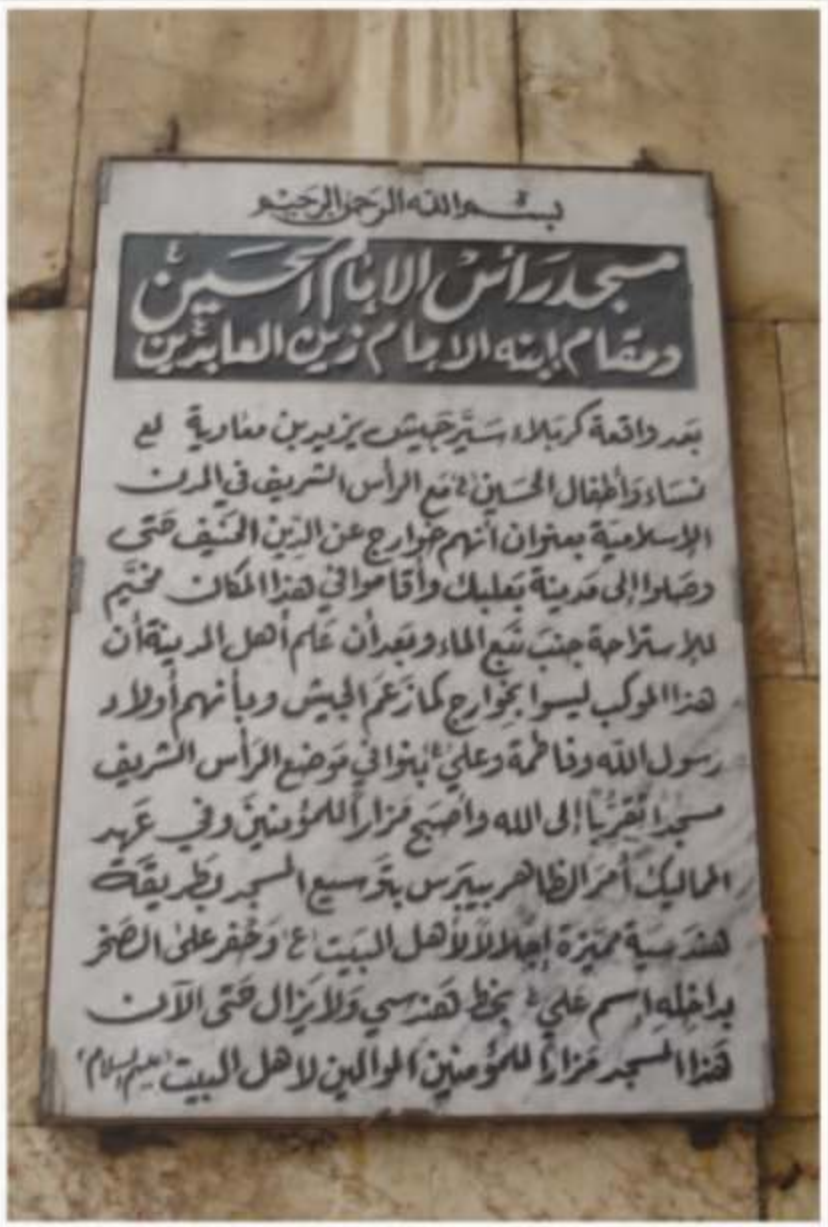 بسم الله الرحمن الرحيم
مسجد رأس الإمام الحسين ع
ومقام إبنه الامام زين العابدين ع
بعد واقعة كربلاء سيَّر جيش يزيد بن معاوية لع
نساء وأطفال الحسين ع مع الرأس الشريف في المدن
الإسلامية بعنوان أنهم خوارج عن الدين الحنيف حتى
وصلوا إلى مدينة بعلبك وأقاموا في هذا المكان مخيَّم
للإستراحة جنب نبع الماء وبعد أن علم أهل المدينة أن
هذا الموكب ليسوا بخوارج كما زعم الجيش وبأنهم أولاد
رسول الله وفاطمة وعلي ع بنوا في موضع الرأس الشريف
مسجداً تقرباً إلى الله وأصبح مزاراً للمؤمنين وفي عهد
المماليك أمر الظاهر بيبرس بتوسيع المسجد بطريقة
هندسية مميزة إجلالاً لأهل البيت (ع) وحفر على الصخر
بداخله إسم علي ع بخط هندسي ولا يزال حتى الآن
هذا المسجد مزاراً للمؤمنين الموالين لاهل البيت (عليهم السلام)